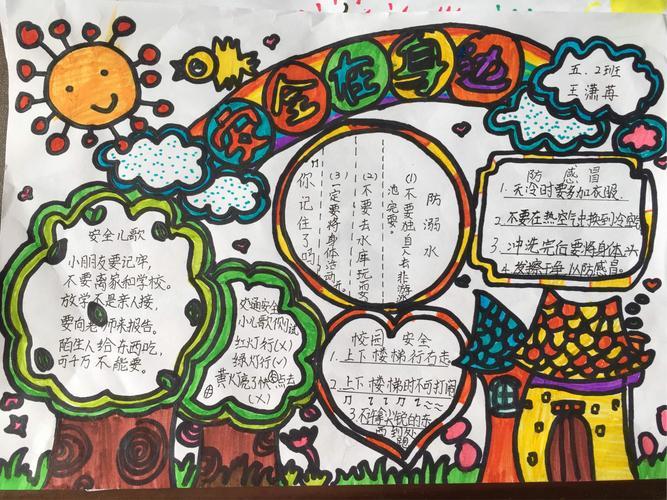 安全在身边
五.2班
王潇苒
安全儿歌
小朋友要记牢,
不要离家和学校。
放学不是亲人接,
要向老师来报告。
陌生人给东西吃,
可千万不能要。
交通安全
小儿歌
红灯行(X)
绿灯行(√)
黄灯亮了快点去
(X)
防溺水
(1)不要独自人去非游泳
池完耍
(2)不要去水库玩耍
(3)一定要将身体活动
你记住了吗
防感冒
1.天冷时要多加衣服.
2.不要在热空气中换到冷空
3.冲洗完后要将身体、头
发擦干净以防感冒。
校园安全
1.上下楼梯行右走
2.上下楼梯时不可打闹
3.不 尖锐的东
西到处